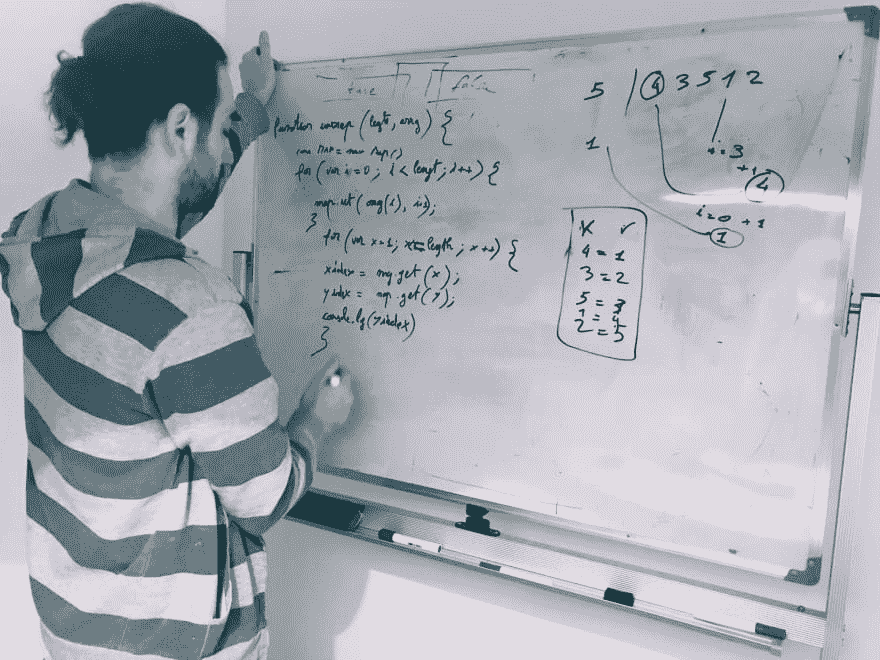 true false
function (legth, arg) {
var MAP = new Map()
for (var i=0; i < lengt; i++) {
map.set( arg(i), i+1);
}
for (var x=1; x<=legth; x++) {
xindex = map.get(x);
yindex = map.get(y);
console.lg(yindex)
}
5 | 4 3 5 1 2
1
i=3
+1
4
i=0 +1
1
K v
4 = 1
3 = 2
5 = 3
1 = 4
2 = 5